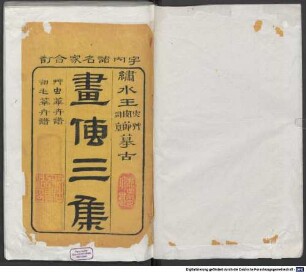 宇內諸名家合訂
繡水王宓草安節司直摹古
畫傳三集
草蟲華卉譜
翎毛華卉譜
Digitalisierung gefördert durch die Deutsche Forschungsgemeinschaft